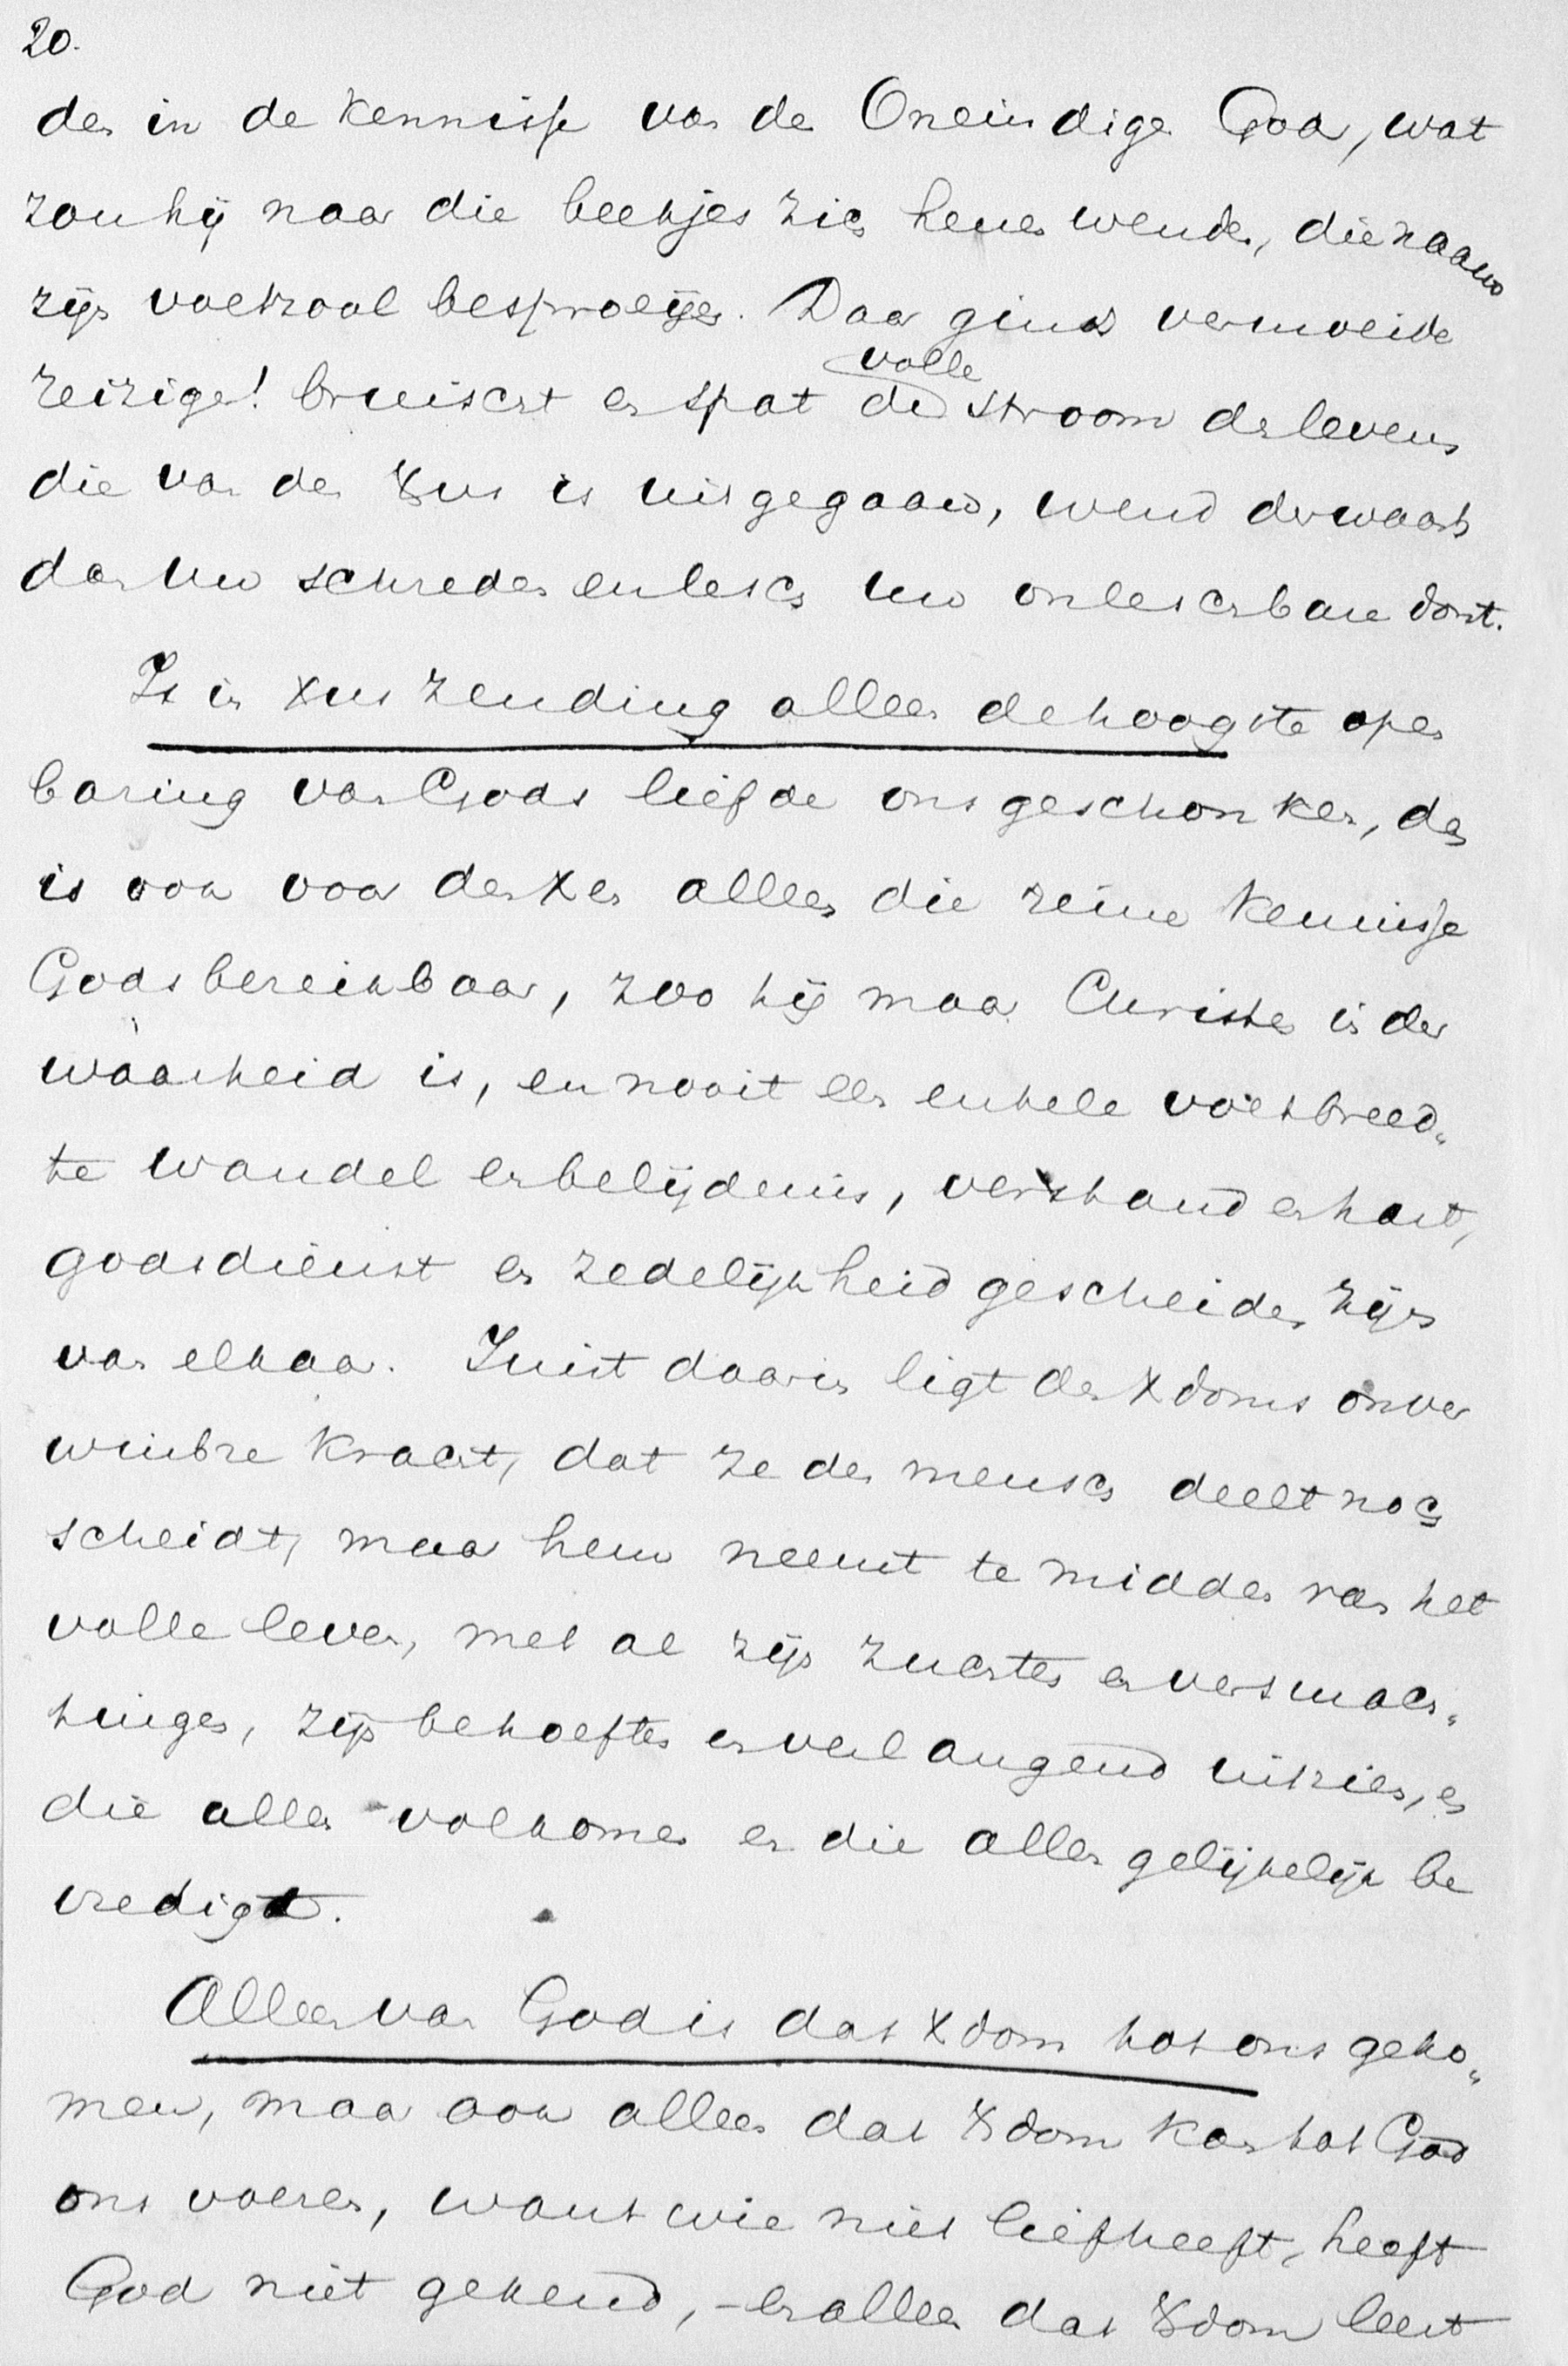 20.
den in de kennisse van den Oneindigen God, wat
zou hij naar die beekjes zich henen wenden, die naauw
zijn voetzool besproeijen. Daar ginds vermoeide
reiziger! bruischt en spat de volle stroom des levens
die van den Xus is uitgegaan, wend derwaarts
dan uw schreden en lesch uw onleschbaren dorst.
Is in Xus zending alleen de hoogste open
baring van Gods liefde ons geschonken, dan
is ook voor den Xen alleen die reine kennisse
Gods bereikbaar, zoo hij maar Christen in der
waarheid is, en nooit een enkele voetbreed„
te wandel en belijdenis, verstand en hart,
godsdienst en zedelijkheid gescheiden zijn
van elkaar. Juist daarin ligt des Xdoms onver
winbre kracht, dat ze den mensch deelt noch
scheidt, maar hem neemt te midden van het
volle leven, met al zijn zuchten en versmach„
tingen, zijn behoeften en verlangend uitzien, en
die allen volkomen en die allen gelijkelijk be
vredigt.
Alleen van God is dat Xdom tot ons geko„
men, maar ook alleen dat Xdom kan tot God
ons voeren, want wie niet liefheeft, heeft
God niet gekend, – en alleen dat Xdom leert